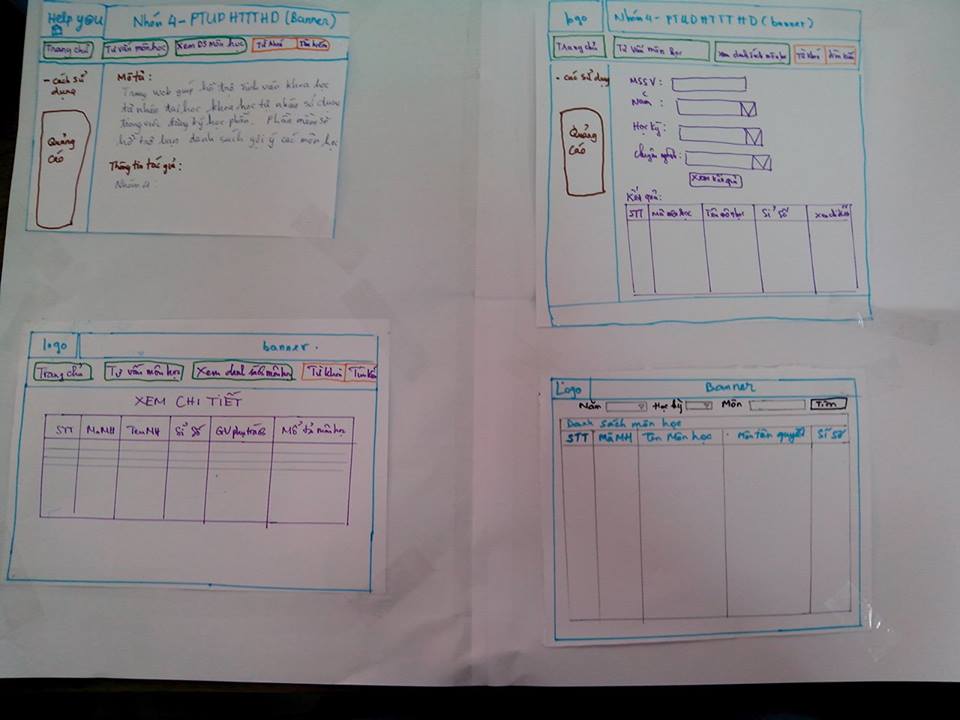 Help you
Nhóm 4 - PTUD HTTTHD (Banner)
Trang chủ
Tư vấn môn học
Xem DS Môn học
Từ khóa
Tìm kiếm
- cách sử
dụng
Quảng
cáo
Mô tả :
Trang web giúp hỗ trợ sinh viên khoa học
tự nhiên đại học khoa học tự nhiên sử dụng
trong việc đăng ký học phần. Phần mềm sẽ
hỗ trợ bạn danh sách gợi ý các môn học
Thông tin tác giả :
Nhóm 4
logo
Nhóm 4 - PTUD HTTT HD (banner)
Trang chủ
Tư vấn môn học
Xem danh sách môn học
Từ khóa
tìm kiếm
- Các sử dụng
Quảng
Cáo
MSSV :
Năm :
Học kỳ :
Chuyên ngành :
Xem kết quả
Kết quả:
STT
Mã môn học
Tên môn học
Sỉ số
xem chi tiết
logo
banner .
Trang chủ
Tư vấn môn học
Xem danh sách môn học
Từ khóa
Tìm kiếm
XEM CHI TIẾT
STT
MaMH
TenMH
Sỉ Số
GV phụ trách
Mô tả môn học
Logo
Banner
Năm
Học kỳ
Môn
Tìm
Danh sách môn học
STT
MãMH
Tên Môn học
Môn tiên quyết
Sỉ Số